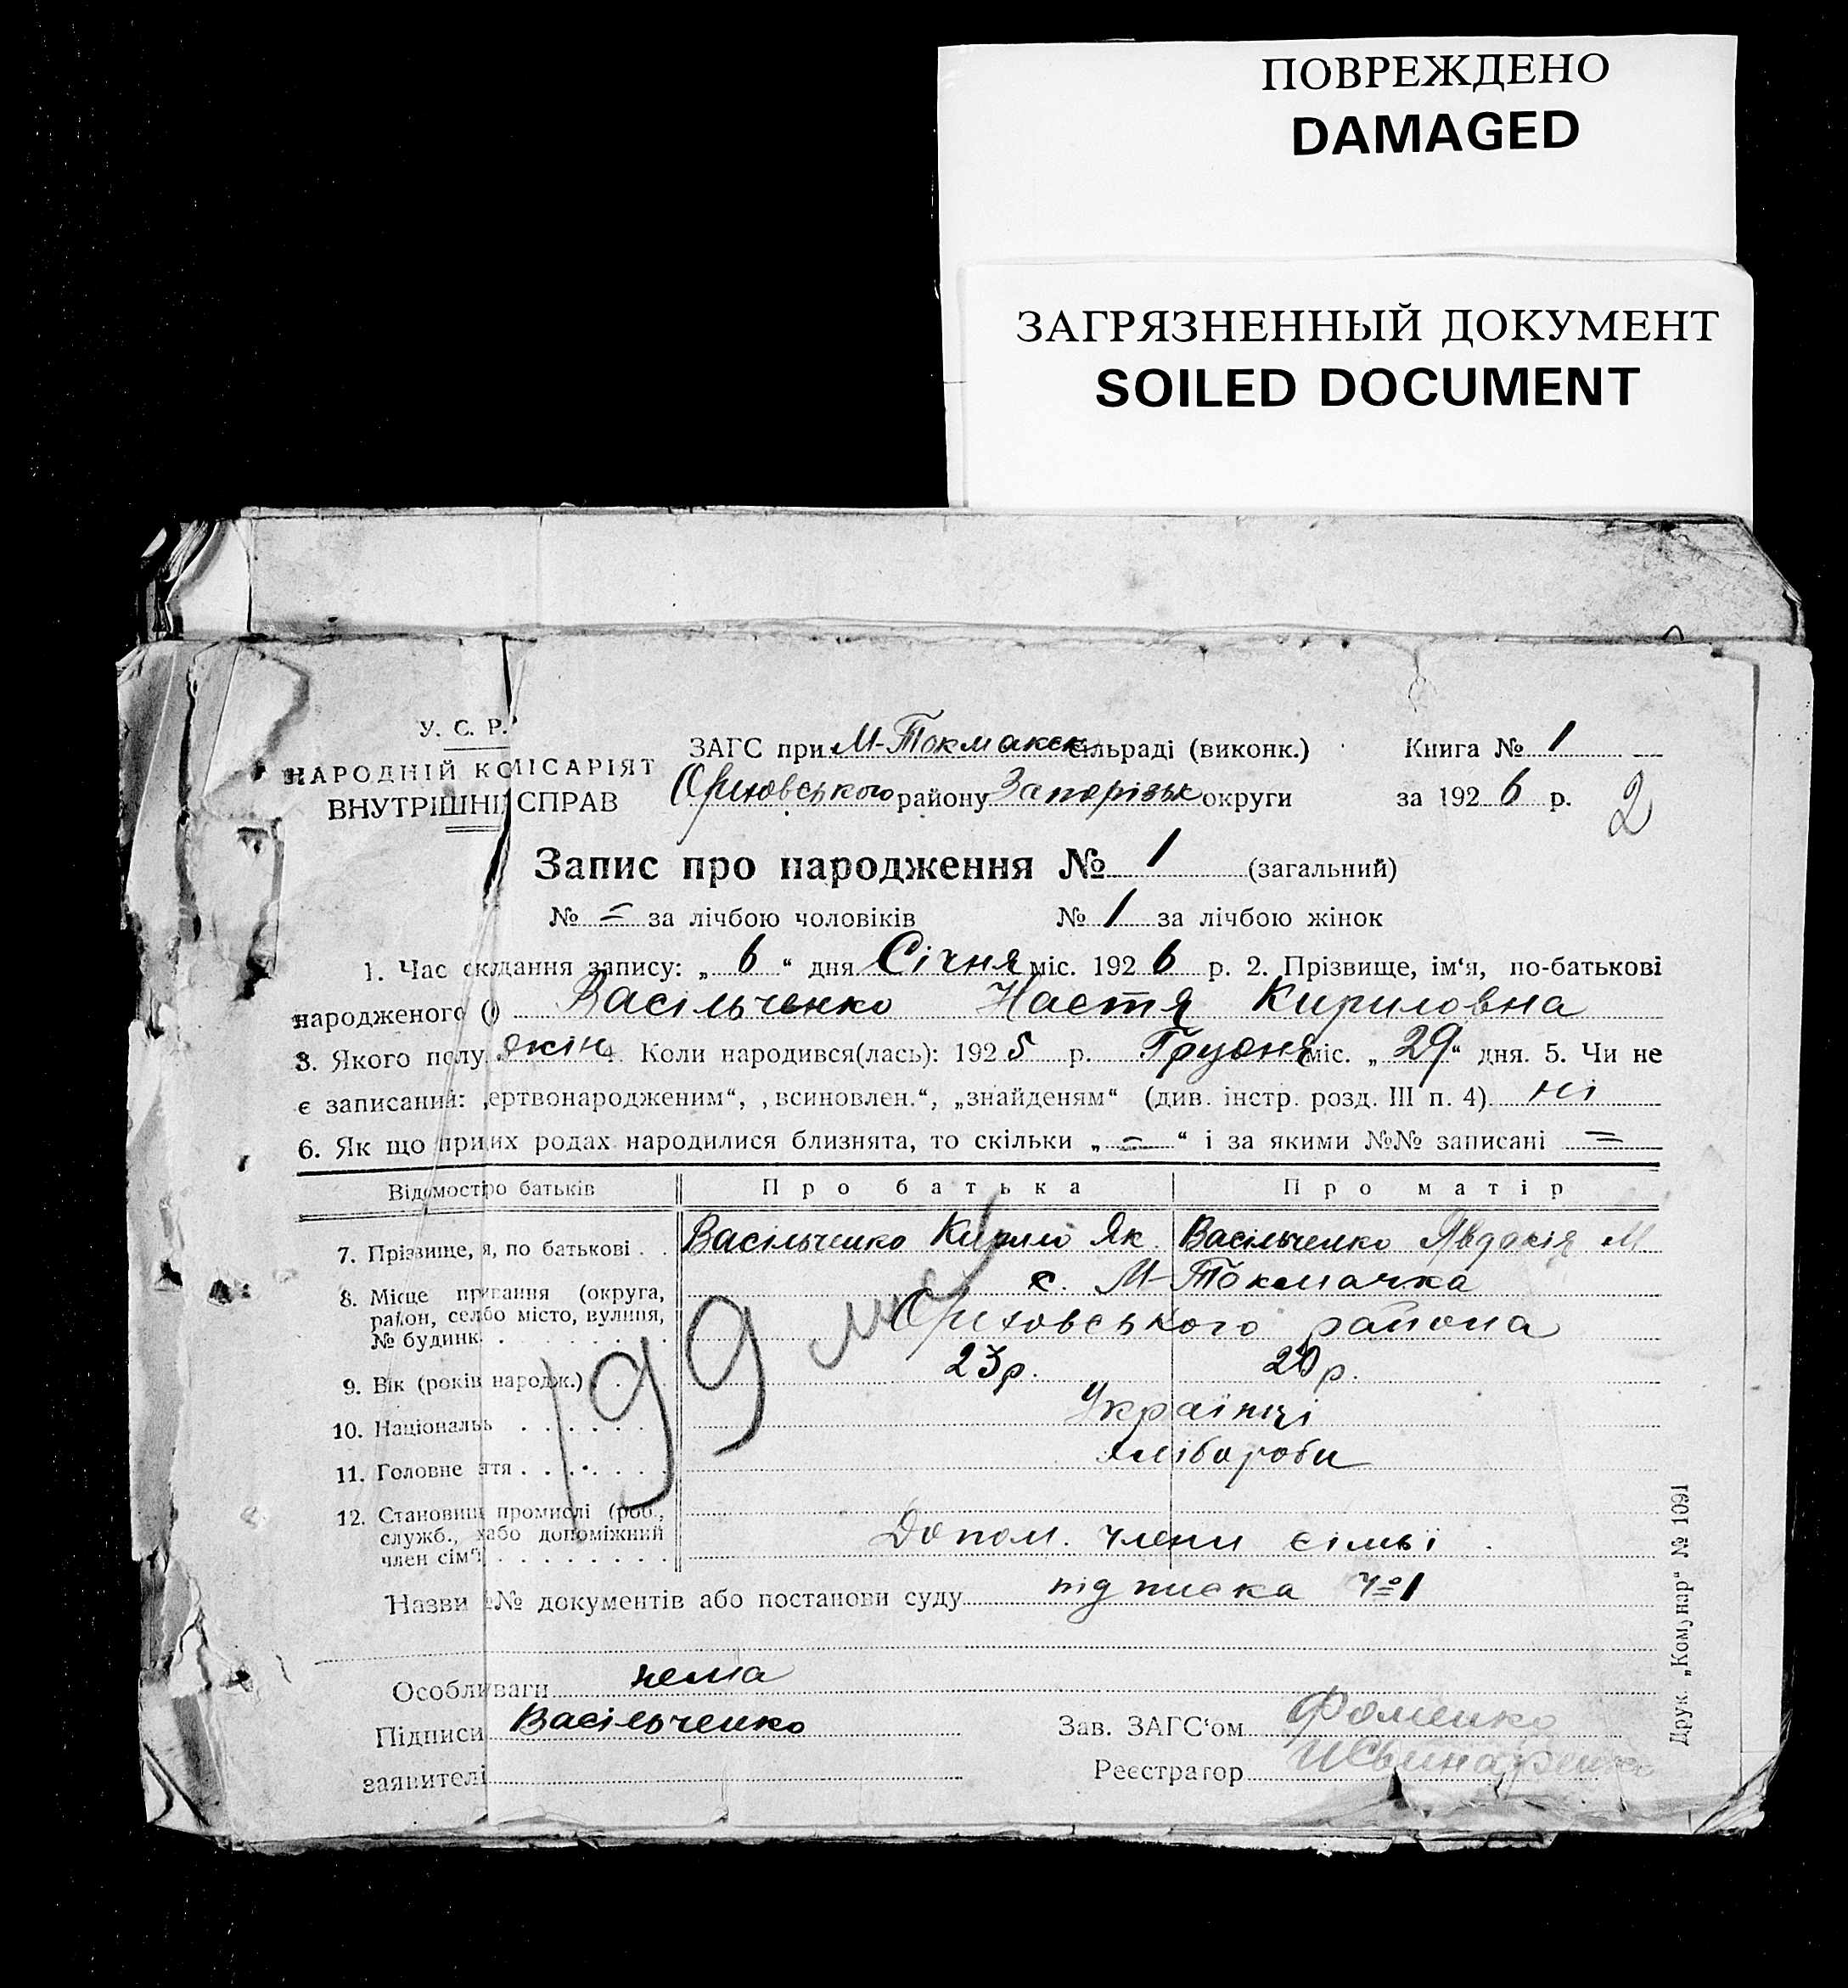 ПОВРЕЖДЕНО
DAMAGED
ЗАГРЯЗНЕННЫЙ ДОКУМЕНТ
SOILED DOCUMENT
У. С. Р.
НАРОДНІЙ КОМІСАРІЯТ
ВНУТРІШНІ СПРАВ
ЗАГС при М-Токмакск сільраді (виконк.)
Оріховського району Запорізьк округи
Книга № 1
за 1926 р.
2
Запис про народження № 1 (загальний)
№ = за лічбою чоловіків № 1 за лічбою жінок
1. Час складання запису: „6“ дня Січня міс. 1926 р. 2. Прізвище, ім‘я, по-батькові
народженого () Васільченко Настя Кириловна
3. Якого полу жін 4. Коли народився(лась): 1925 р. Грудня міс. „29“ дня. 5. Чи не
є записаний: „ертвонародженим“, „всиновлен.“, „знайденям“ (див. інстр. розд. III п. 4) ні
6. Як що при их родах народилися близнята, то скільки „=“ і за якими №№ записані =
Відомост ро батьків Про батька Про матір
7. Прізвище, я, по батькові . . Васільченко Кирило Як. Васільченко Явдокія М
8. Місце пр вання (округа, с. М-Токмачка
район, сел бо місто, вулиця, Оріховського района
№ будинк
9. Вік (років народж.) 23р. 20р.
10. Національ Українці
11. Головне ття Хлібороби
199
12. Становищ промислі (роб.,
служб., або допоміжний Допом. члени сімьї
член сім‘ї
Назви №№ документів або постанови суду підписка №1
Особливаги нема
Підписи Васільченко
заявителі
Зав. ЗАГС‘ом Фоменко
Реєстратор
Друк. „Комунар“ № 1091